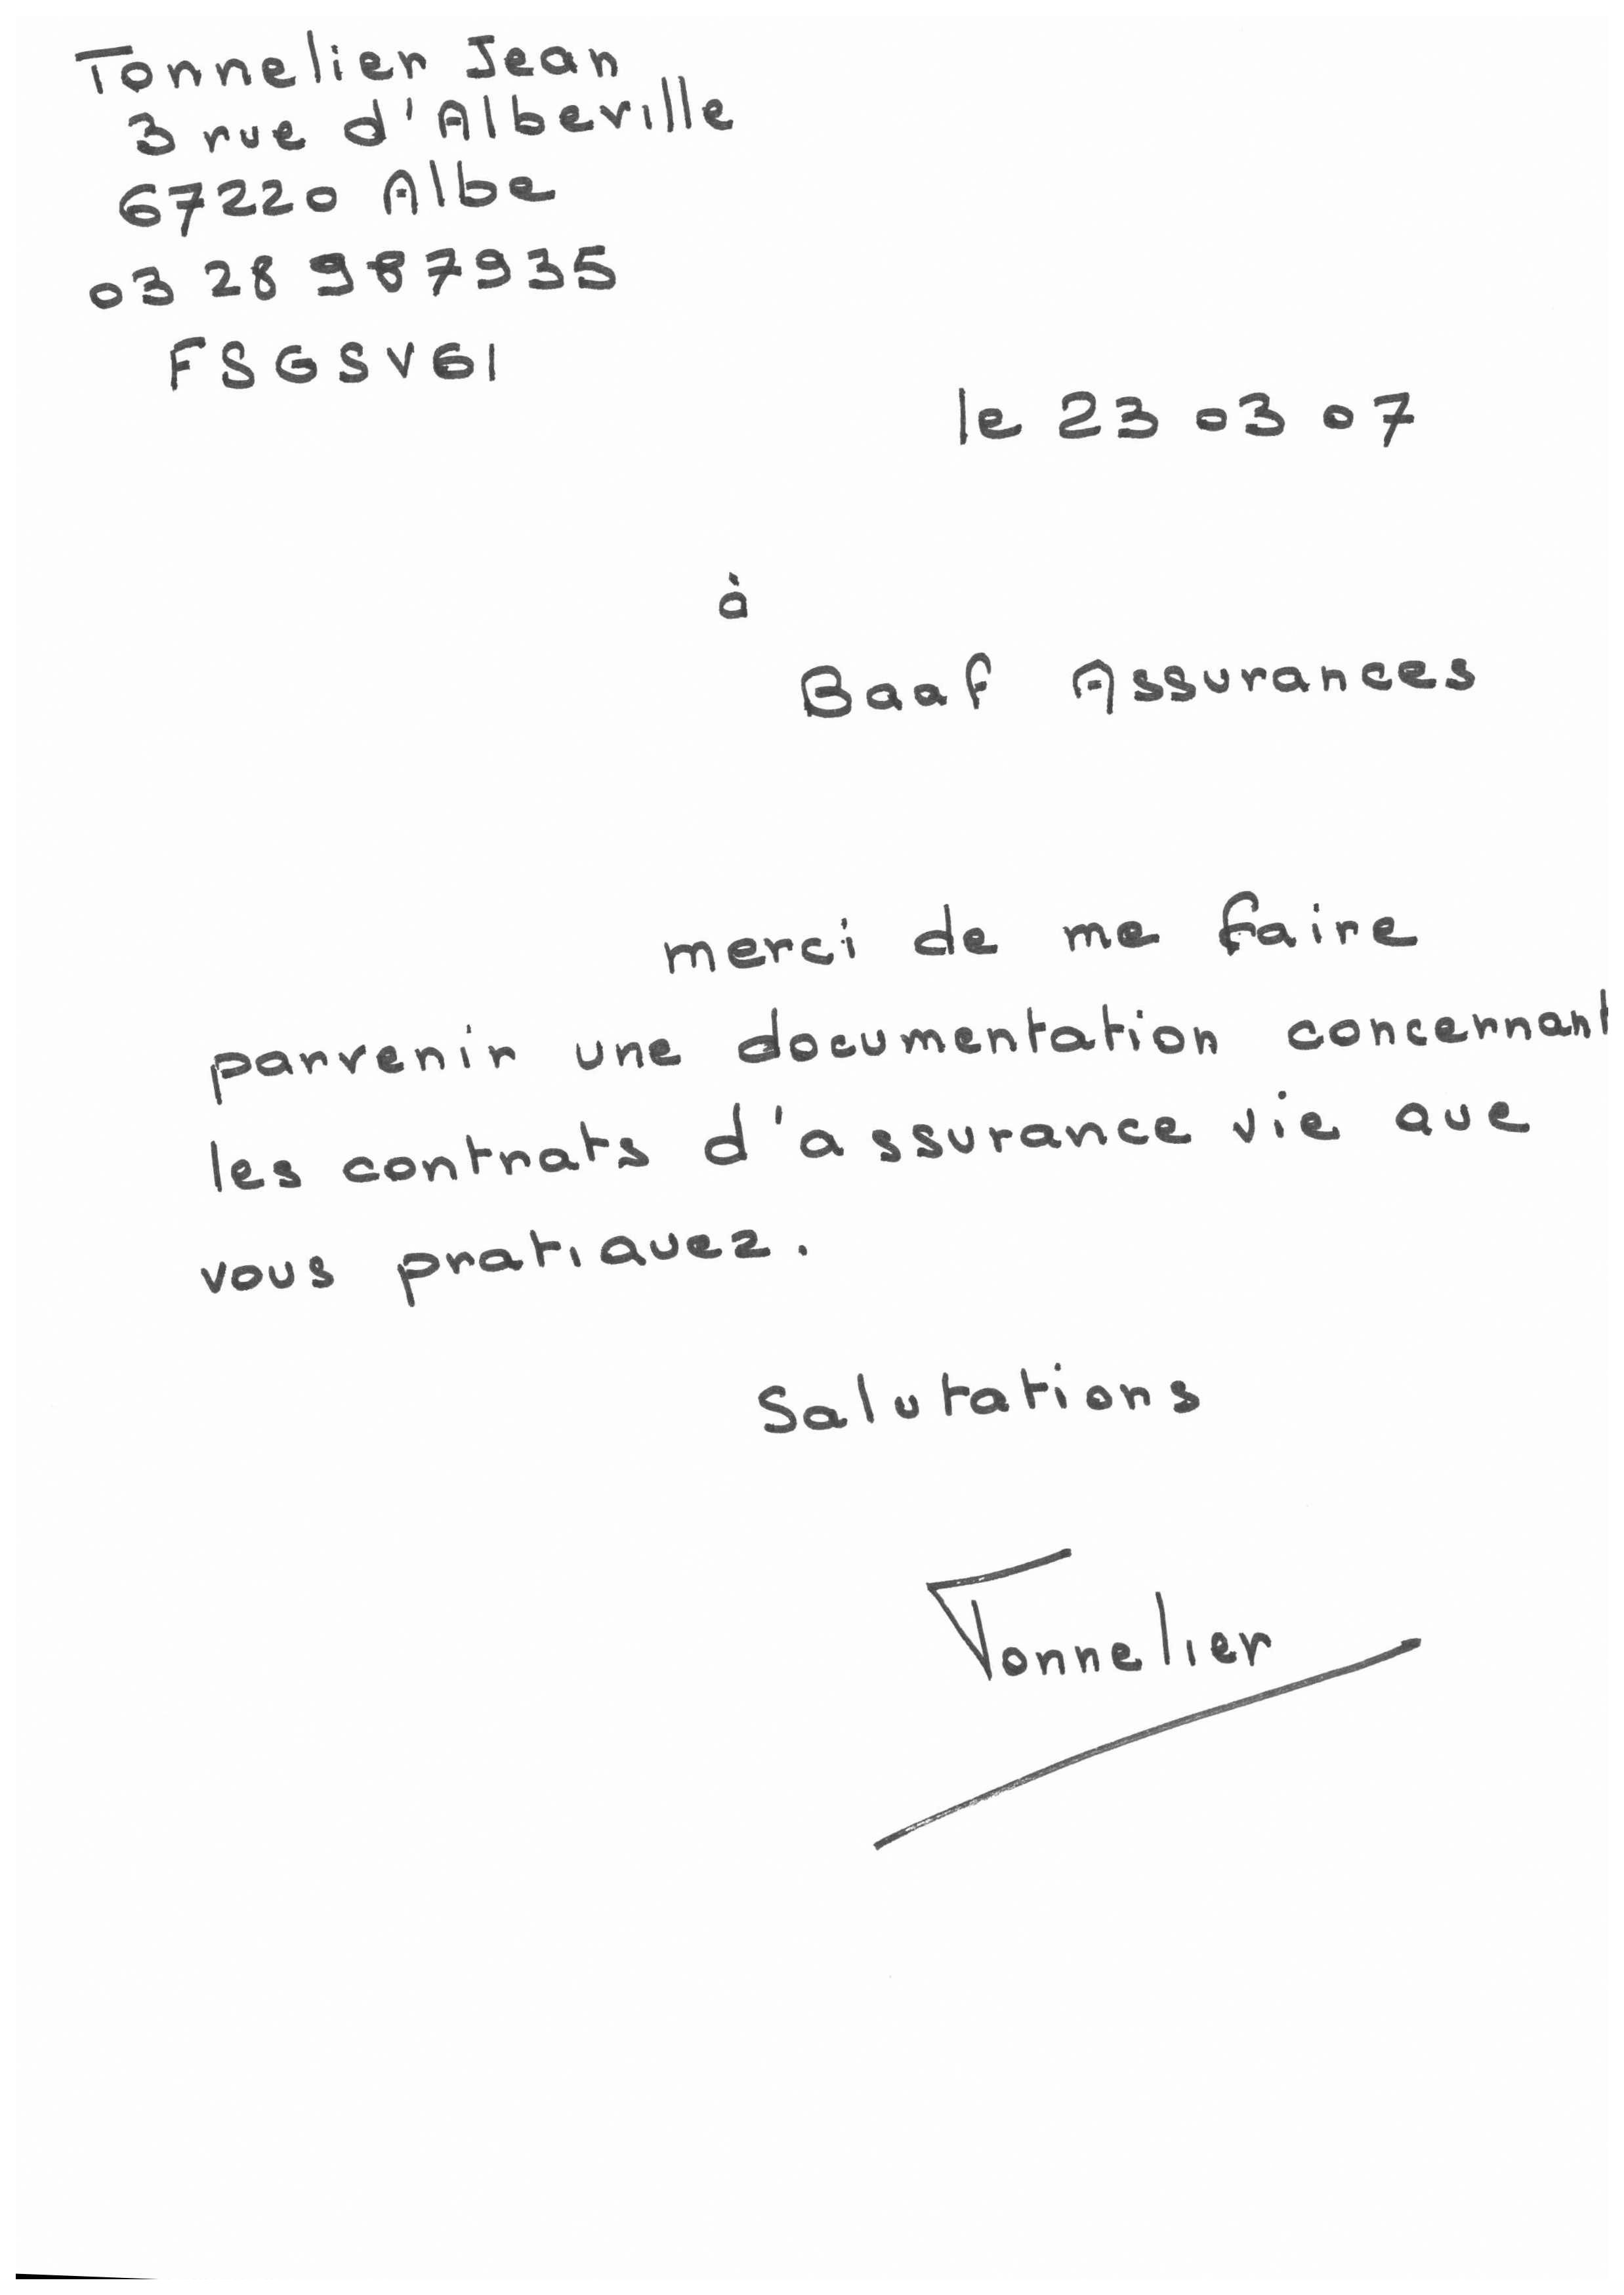 Tonnelier Jean
3 rue d'Albeville
67220 Albe
03 28 987935
FSGSV61
le 23 03 07
à
Baaf Assurances
merci de me faire
parvenir une documentation concernant
les contrats d'assurance vie que
vous pratiquez.
Salutations
Tonnelier